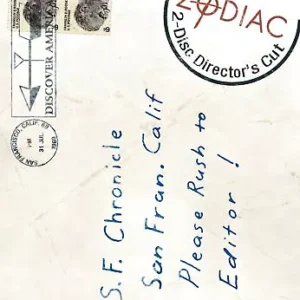 ZODIAC
2-Disc Director's Cut
DISCOVER AMERICA
SAN FRANCISCO, CALIF.
PM
31 JUL
1969
S.F. Chronicle
San Fran. Calif
Please Rush to
Editor!